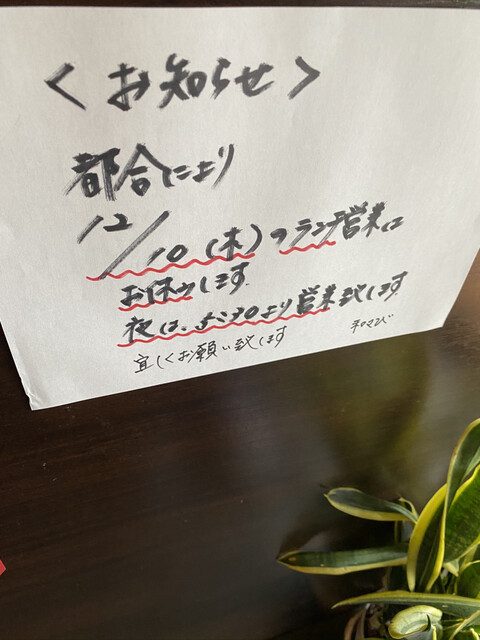 ＜お知らせ＞
都合により
12/10（木）のランチ営業は
お休みします
夜は、5:30より営業致します
宜しくお願い致します
和さび